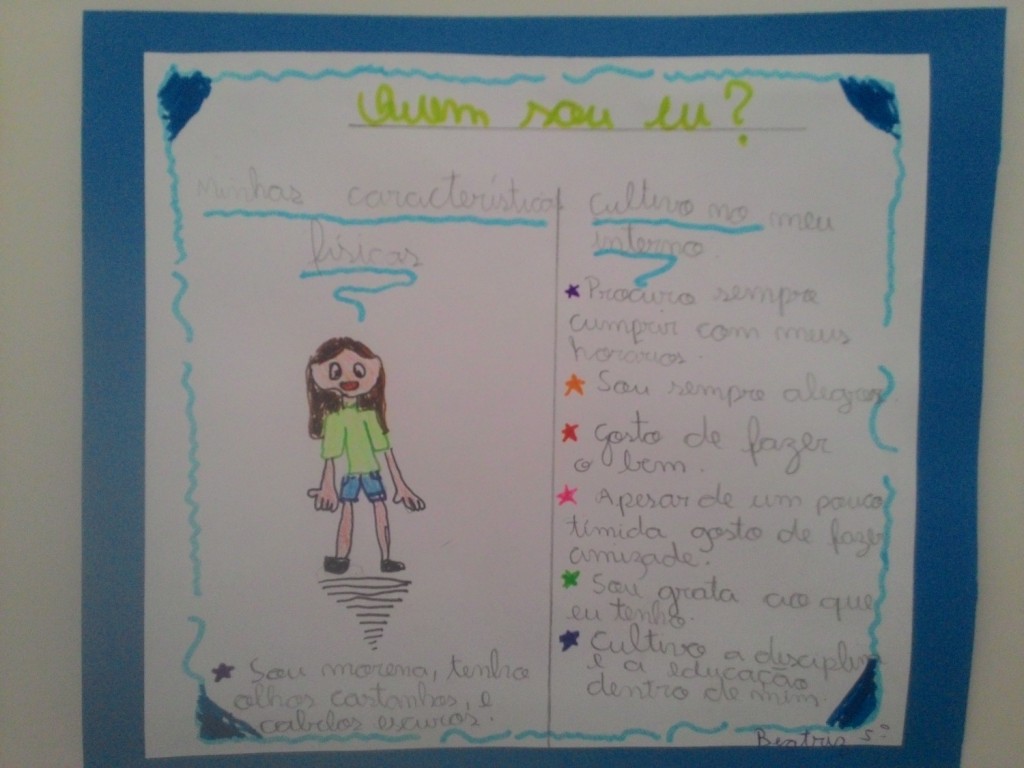 Quem sou eu?
Minhas características
físicas
Sou morena, tenho
olhos castanhos, e
cabelos escuros.
Cultivo no meu
interno
Procuro sempre
cumprir com meus
horarios.
Sou sempre alegre.
Gosto de fazer
o bem.
Apesar de um pouco
tímida gosto de fazer
amizade.
Sou grata ao que
eu tenho.
Cultivo a disciplina
e a educação
dentro de mim.
Beatriz 5º